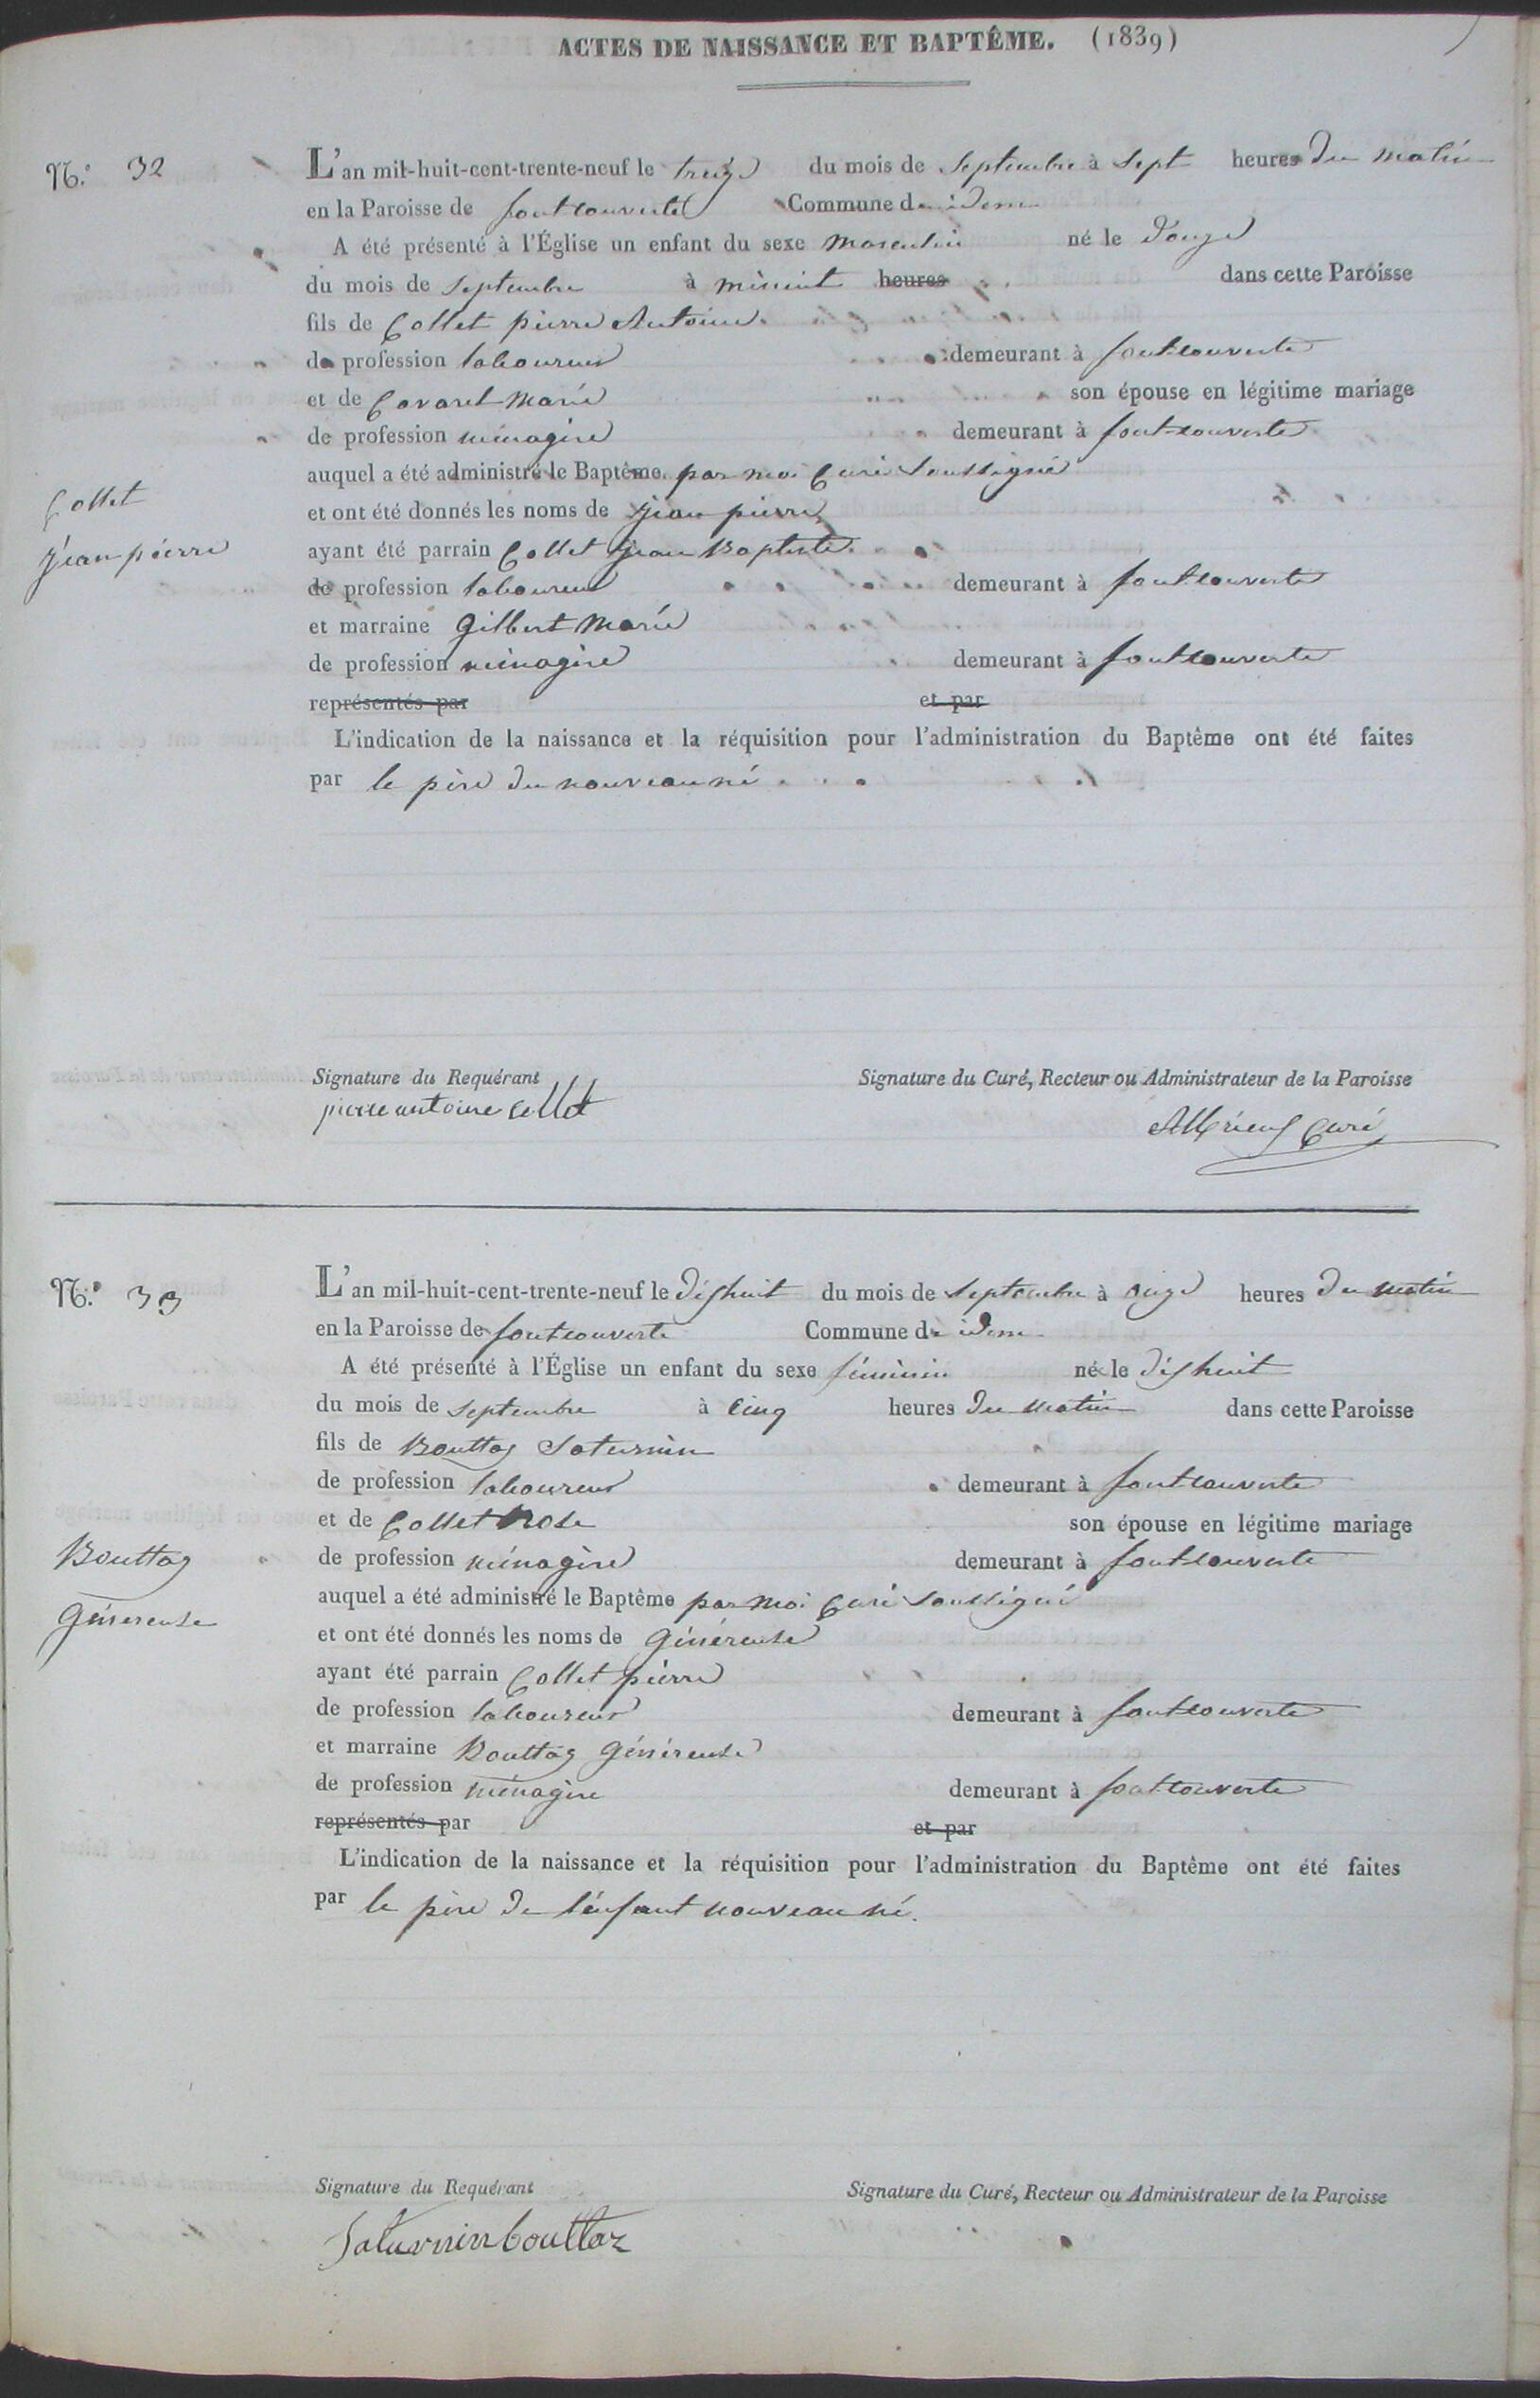 ACTES DE NAISSANCE ET BAPTÊME. (1839)
N.º 32
L'an mil-huit-cent-trente-neuf le treize du mois de Septembre à Sept heures du matin
en la Paroisse de fontcouverte Commune de idem
A été présenté à l'Église un enfant du sexe masculin né le Douze
du mois de Septembre à minuit heures dans cette Paroisse
fils de Collet pierre Antoine
de profession laboureur demeurant à fontcouverte
et de Covarel Marie son épouse en légitime mariage
de profession ménagère demeurant à fontcouverte
auquel a été administré le Baptême par moi Curé Soussigné
Collet
jean pierre
et ont été donnés les noms de jean pierre
ayant été parrain Collet jean Baptiste
de profession laboureur demeurant à fontcouverte
et marraine Gilbert Marie
de profession ménagère demeurant à fontcouverte
représentés par et par
L'indication de la naissance et la réquisition pour l'administration du Baptême ont été faites
par le père du nouveau né
Signature du Requérant Signature du Curé, Recteur ou Administrateur de la Paroisse
pierre antoine collet Curé
N.º 33
L'an mil-huit-cent-trente-neuf le dixhuit du mois de Septembre à onze heures du matin
en la Paroisse de fontcouverte Commune de idem
A été présenté à l'Église un enfant du sexe féminin né le dixhuit
du mois de Septembre à Cinq heures du matin dans cette Paroisse
fils de Bouttaz Saturnin
de profession laboureur demeurant à fontcouverte
et de Collet Rose son épouse en légitime mariage
Bouttaz
Généreuse
de profession ménagère demeurant à fontcouverte
auquel a été administré le Baptême par moi Curé Soussigné
et ont été donnés les noms de Généreuse
ayant été parrain Collet pierre
de profession laboureur demeurant à fontcouverte
et marraine Bouttaz Généreuse
de profession ménagère demeurant à fontcouverte
représentés par et par
L'indication de la naissance et la réquisition pour l'administration du Baptême ont été faites
par le père de l'enfant nouveau né.
Signature du Requérant Signature du Curé, Recteur ou Administrateur de la Paroisse
Saturnin bouttaz